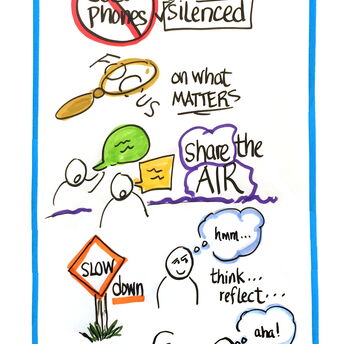 PHONES
silenced
FOCUS
on what
MATTERS
share the
AIR
hmm...
SLOW
down
think...
reflect...
aha!